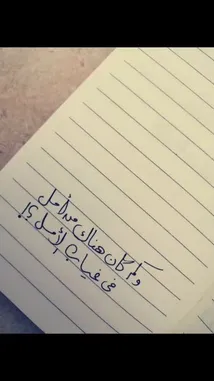 وكم كان هناك من أمل
في غياب الأمل ؟!